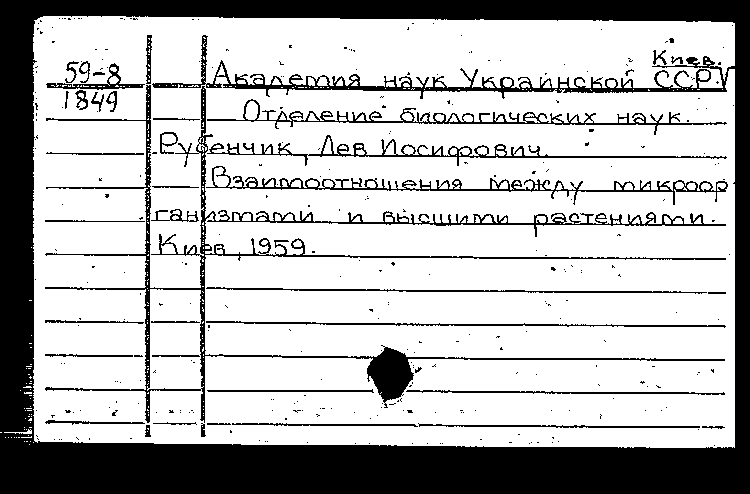 Киев.
59-8 Академия наук Украинской ССР.
1849 Отделение биологических наук.
Рубенчик, Лев Иосифович.
Взаимоотношения между микроор
ганизмами и высшими растениями.
Киев, 1959.